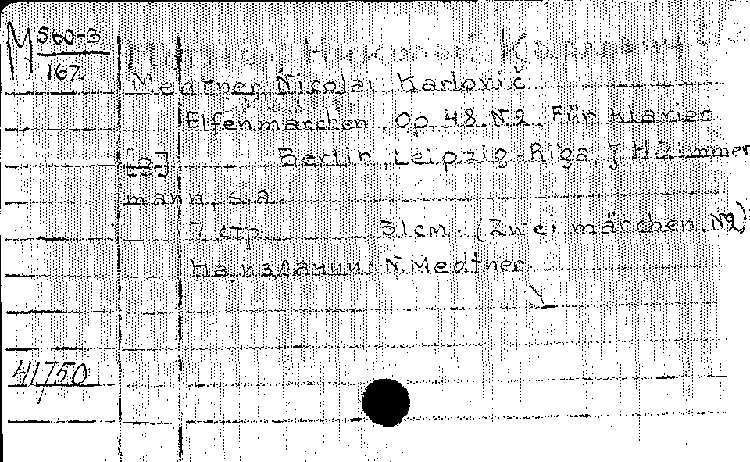 М 560-3
167
Medtner, Nicolai Karlovič
Elfenmärchen Op. 48. N2. Für Klavier
[2] Berlin, Leipzig-Riga J. H. Zimmer
mann, s.a.
7 стр. 31 cm. (Zwei märchen. N2)
На издании: N. Medtner.
41750